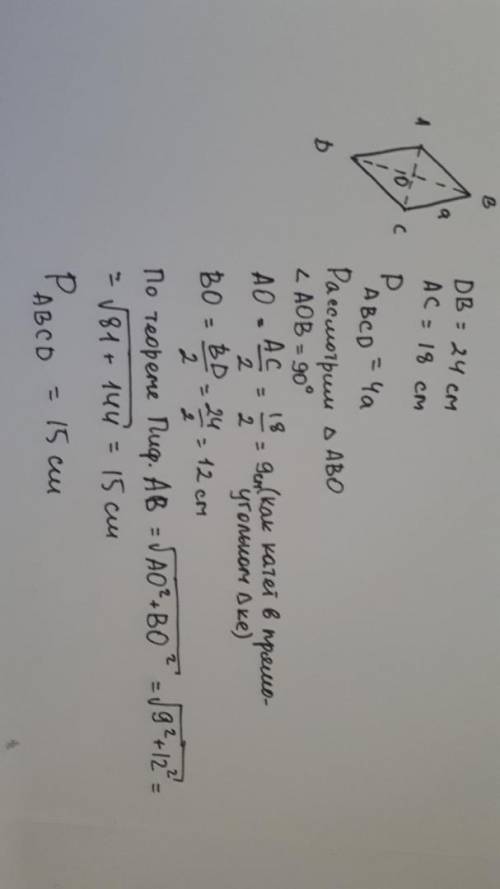 A
B
D
C
O
a
DB = 24 см
AC = 18 см
P ABCD = 4a
Рассмотрим △ ABO
∠ AOB = 90°
AO = AC/2 = 18/2 = 9см (как катет в прямо-
угольном △ке)
BO = BD/2 = 24/2 = 12 см
По теореме Пиф. AB = √AO²+BO² = √9²+12² =
= √81 + 144 = 15 см
P ABCD = 15 см